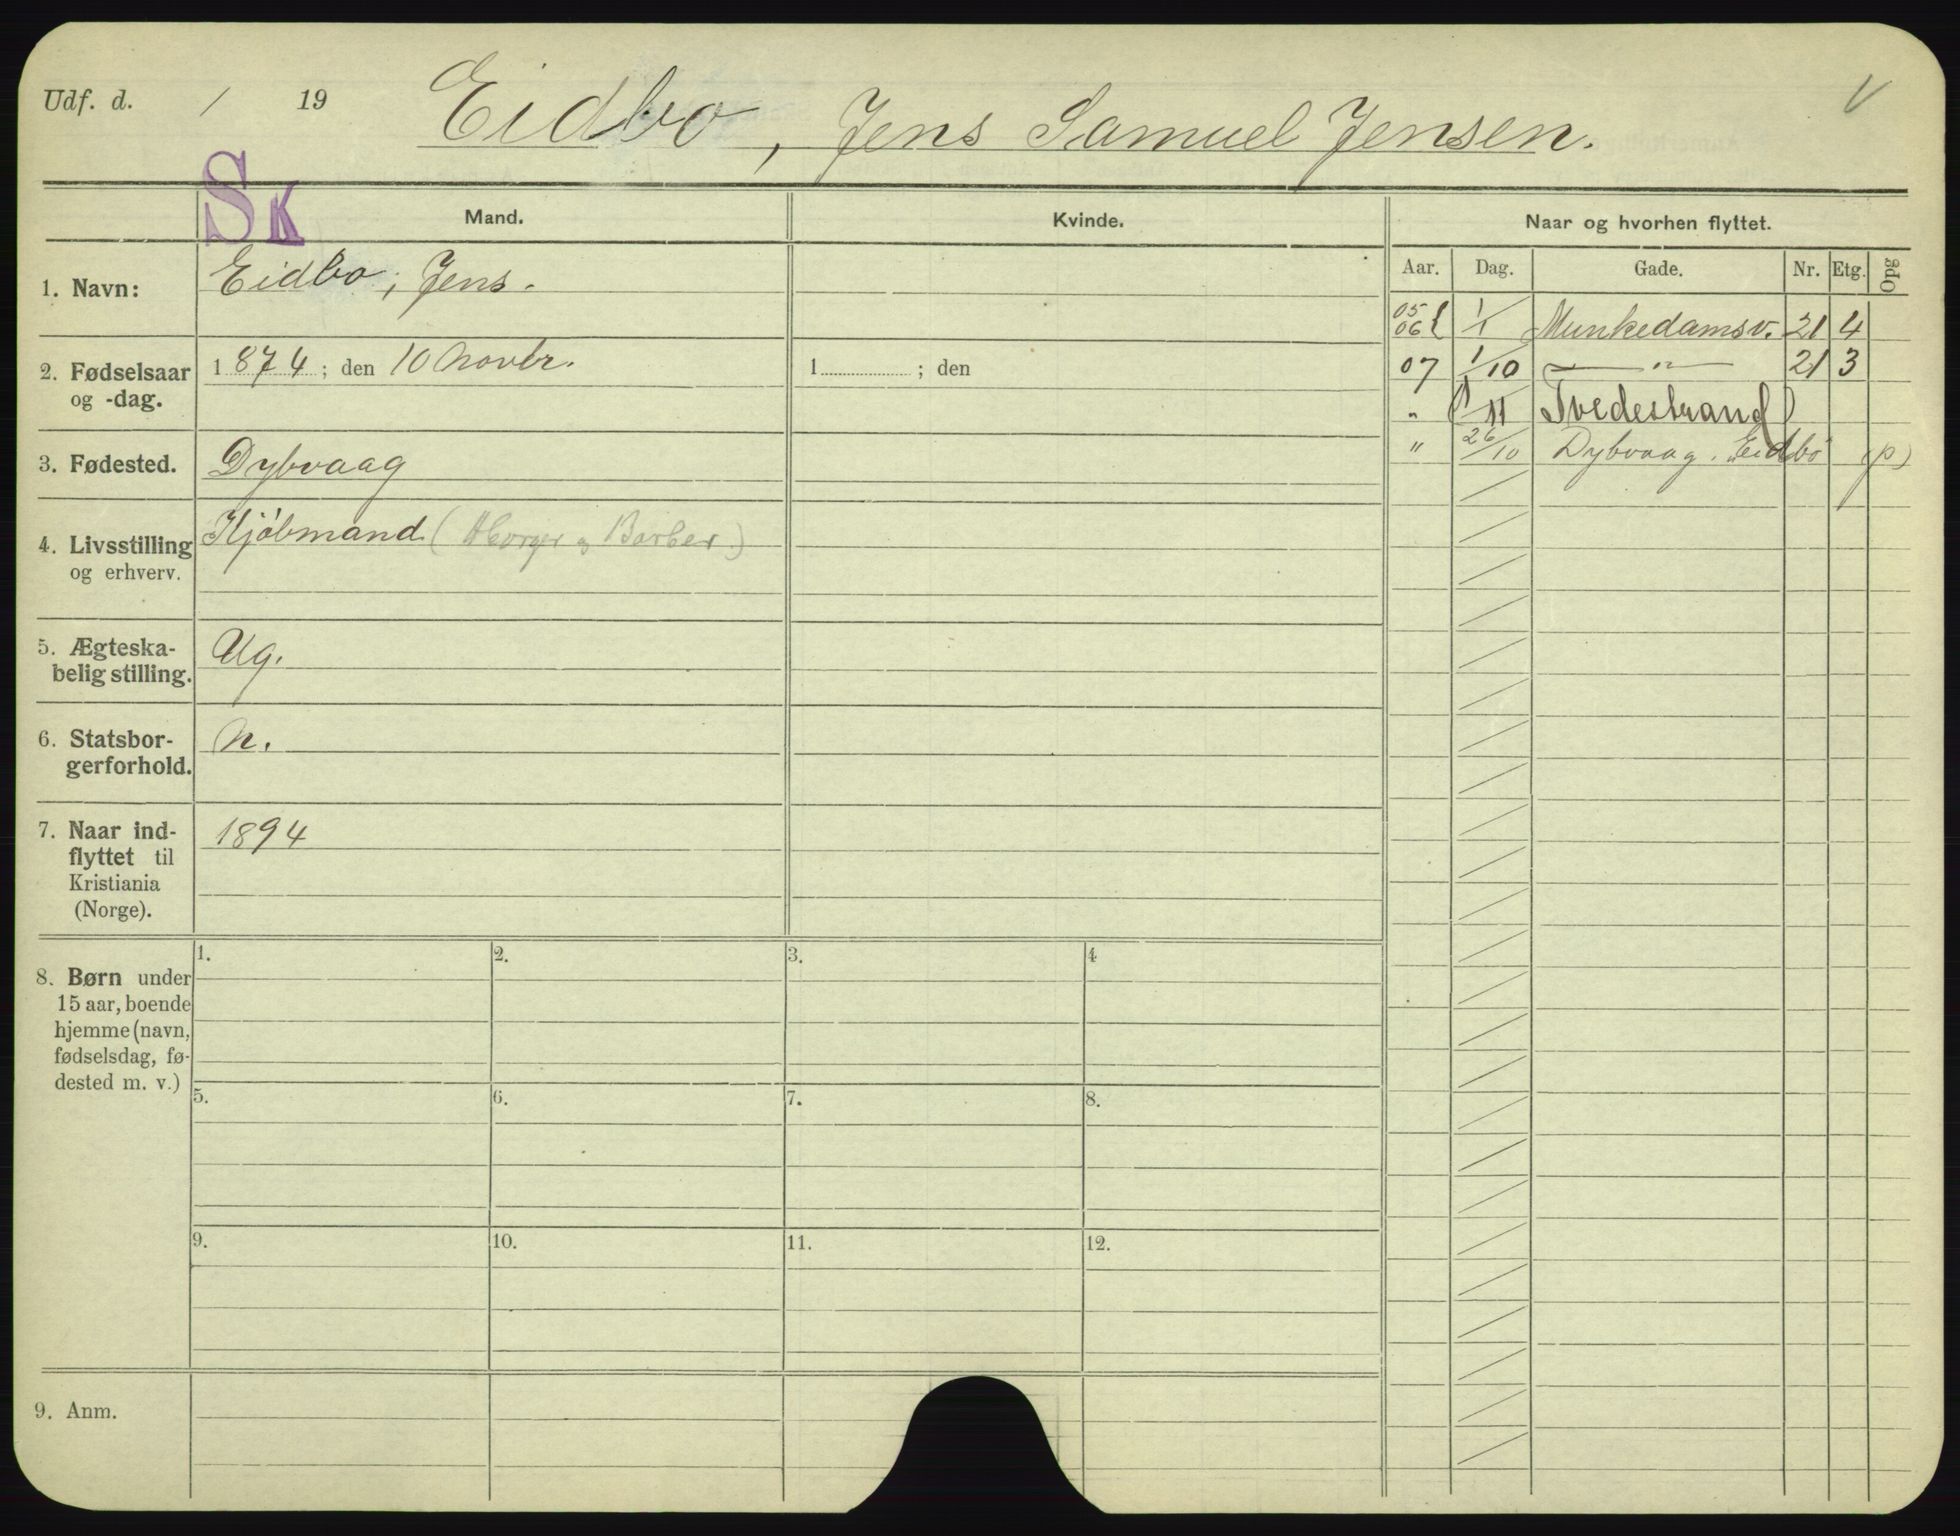 Udf. d. / 19 Eidbo, Jens Samuel Jensen. V
SK
Mand. Kvinde. Naar og hvorhen flyttet.
Aar. Dag. Gade. Nr. Etg. Opg
1. Navn: Eidbo, Jens.
2. Fødselsaar og -dag. 1874; den 10 Novbr. 1 ; den
3. Fødested. Dybvaag
4. Livsstilling og erhverv. Kjøbmand ( og Barber)
5. Ægteskabelig stilling. Ug.
6. Statsborgerforhold. N.
7. Naar indflyttet til Kristiania (Norge). 1894
05 06 { 1/1 Munkedamsv. 21 4
07 1/10 — " — 21 3
" (1/11 Tvedestrand)
" 26/10 Dybvaag. "Eidbo (p)
8. Børn under
15 aar, boende
hjemme (navn,
fødselsdag, fø-
dested m. v.)
1. 2. 3. 4
5. 6. 7. 8.
9. 10. 11. 12.
9. Anm.